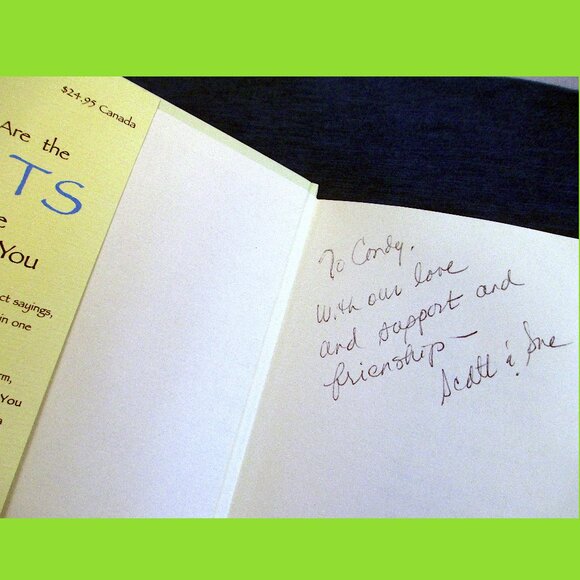 $24.95 Canada
Are the
TS
e
You
ct sayings,
in one
rm,
You
a
To Candy,
with our love
and support and
friendship—
Scott & Sue